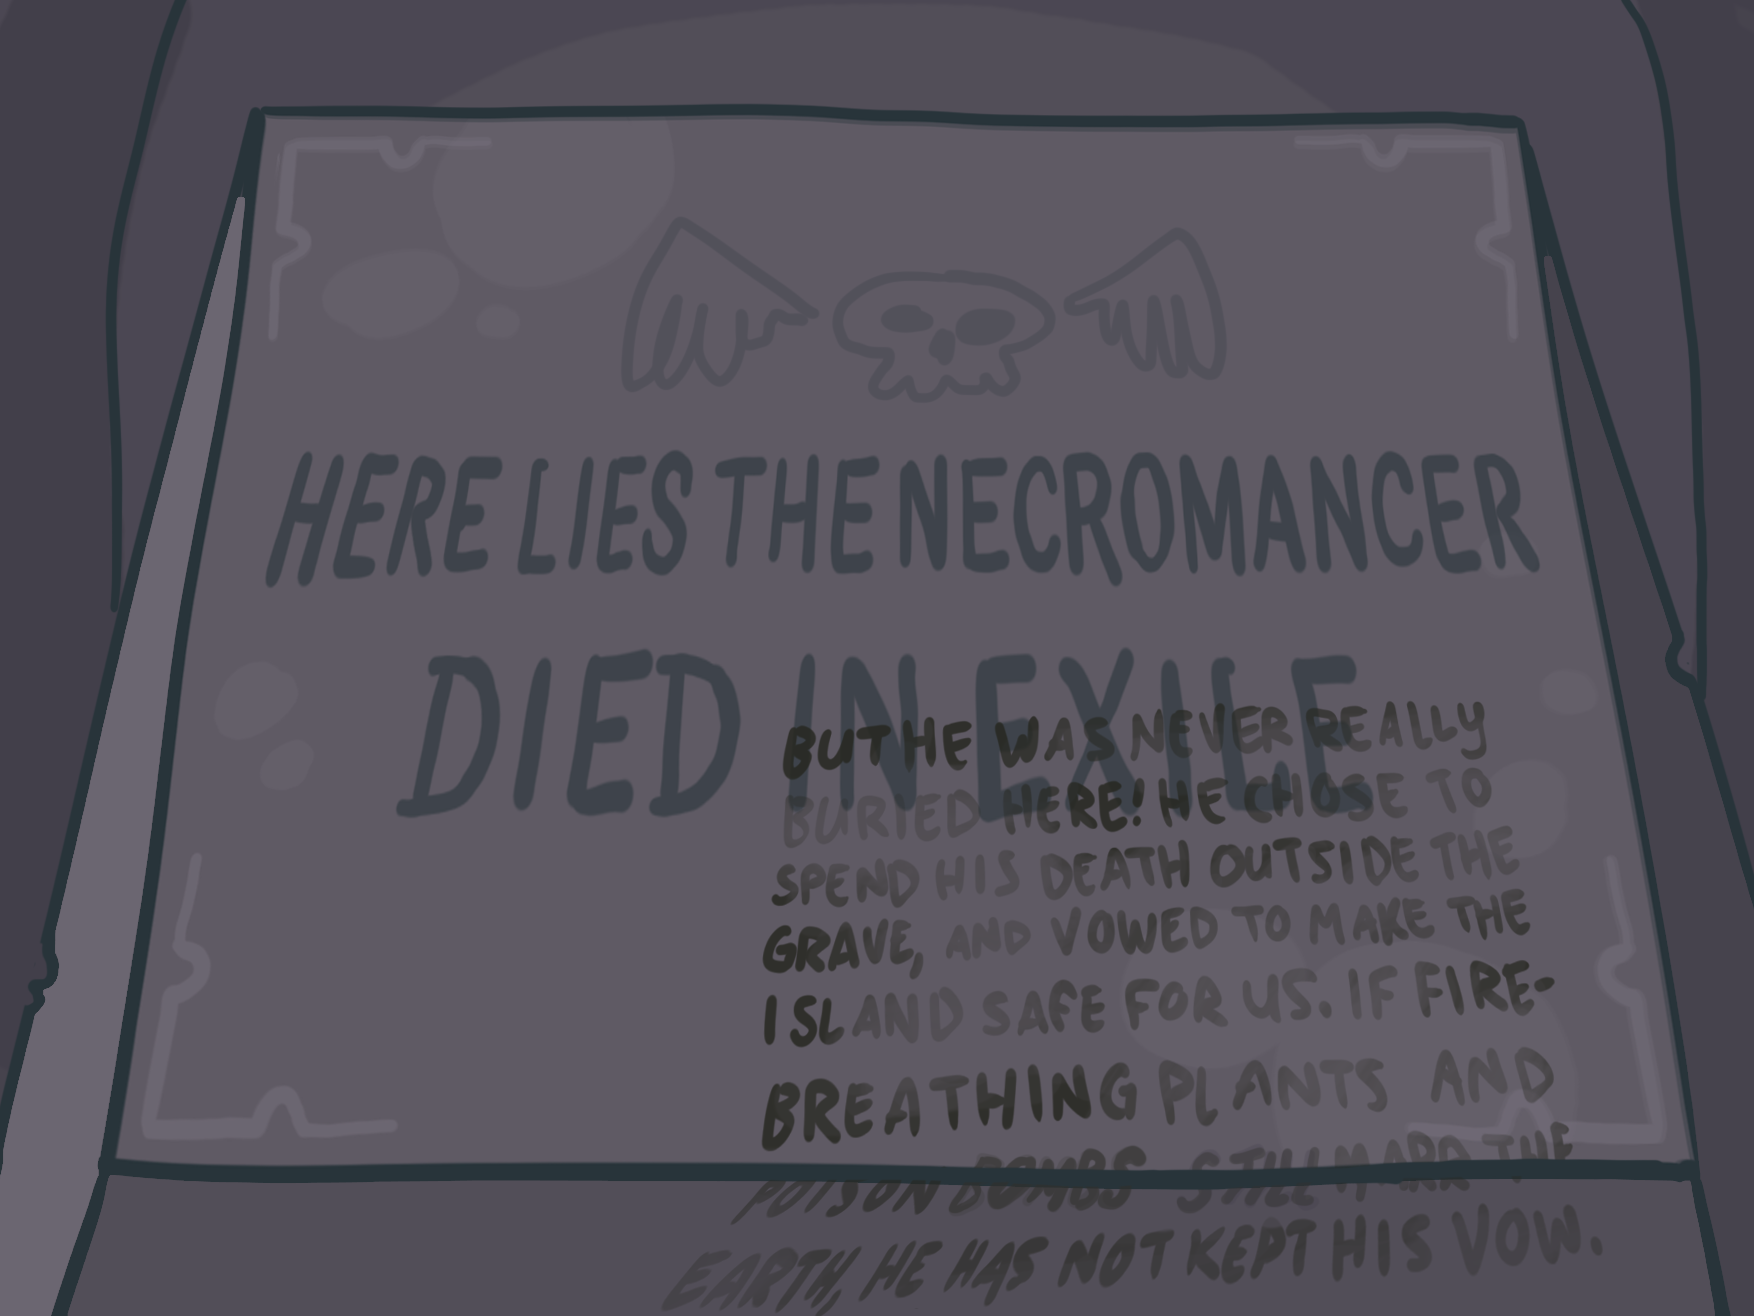 HERE LIES THE NECROMANCER
DIED IN EXILE
BUT HE WAS NEVER REALLY
BURIED HERE! HE CHOSE TO
SPEND HIS DEATH OUTSIDE THE
GRAVE, AND VOWED TO MAKE THE
ISLAND SAFE FOR US. IF FIRE-
BREATHING PLANTS AND
POISON BOMBS STILL MARD THE
EARTH, HE HAS NOT KEPT HIS VOW.